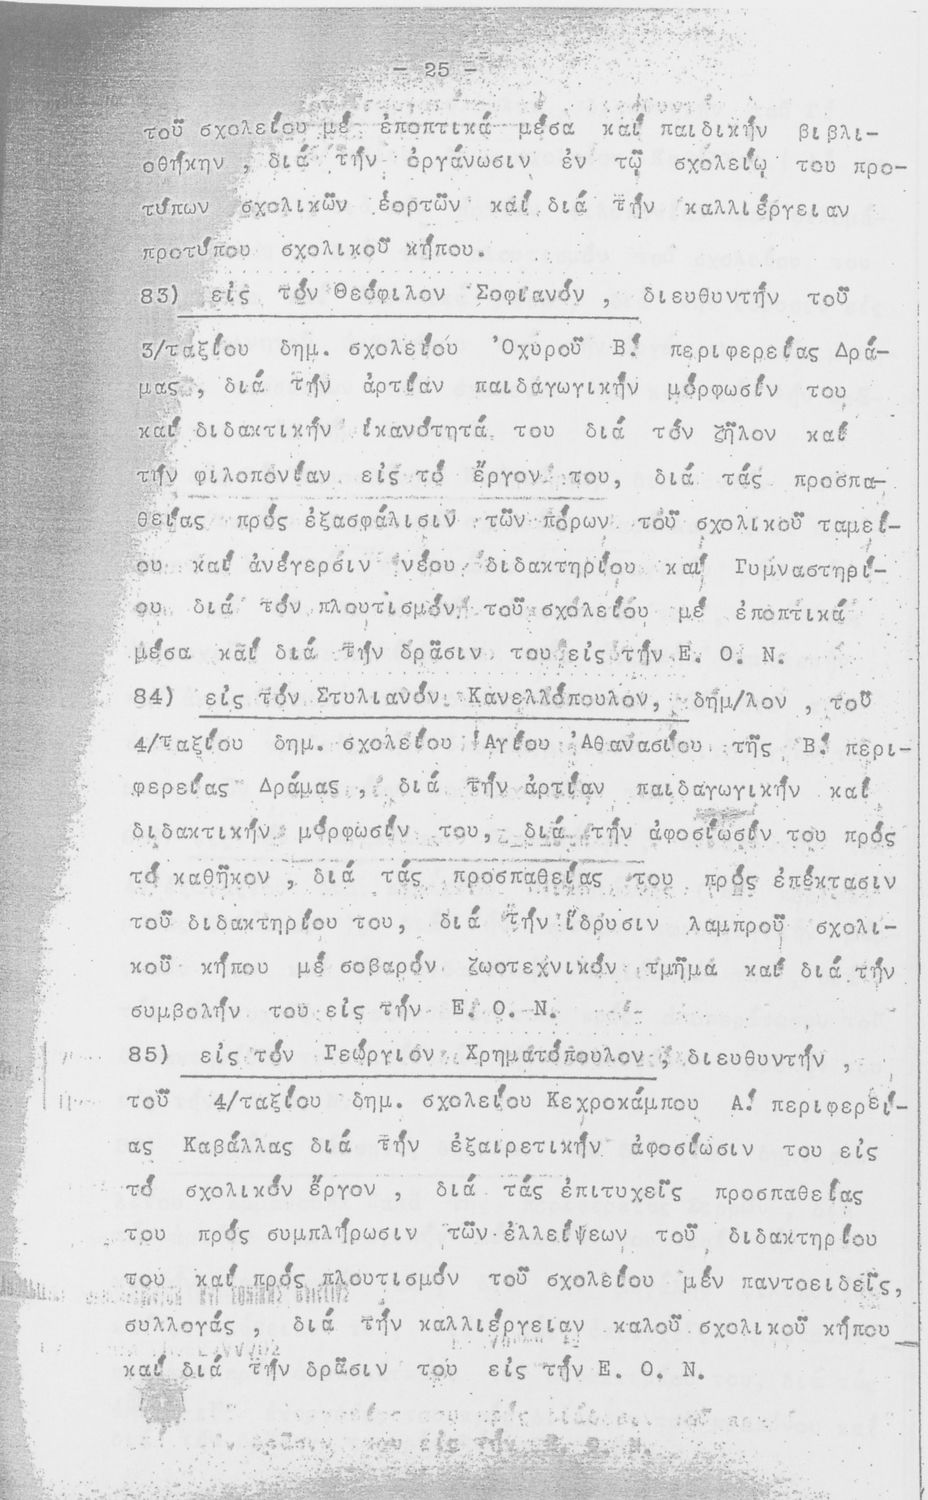 - 25 -
τοῦ σχολείου μέ ἐποπτικά μέσα καί παιδικήν βιβλι-
οθήκην , διά τήν ὀργάνωσιν ἐν τῷ σχολείῳ του προ-
τύπων σχολικῶν ἑορτῶν καί διά τήν καλλιέργειαν
προτύπου σχολικοῦ κήπου.
83) εἰς τόν Θεόφιλον Σοφιανόν , διευθυντήν τοῦ
3/ταξίου δημ. σχολείου Ὀχυροῦ Β! περιφερείας Δρά-
μας , διά τήν ἀρτίαν παιδαγωγικήν μόρφωσίν του
καί διδακτικήν ἱκανότητά του διά τόν ζῆλον καί
τήν φιλοπονίαν εἰς τό ἔργον του, διά τάς προσπα-
θείας πρός ἐξασφάλισιν τῶν πόρων τοῦ σχολικοῦ ταμεί-
ου καί ἀνέγερσιν νέου διδακτηρίου καί Γυμναστηρί-
ου διά τόν πλουτισμόν τοῦ σχολείου μέ ἐποπτικά
μέσα καί διά τήν δρᾶσιν του εἰς τήν Ε. Ο. Ν.
84) εἰς τόν Στυλιανόν Κανελλόπουλον, δημ/λον , τοῦ
4/ταξίου δημ. σχολείου Ἁγίου Ἀθανασίου τῆς Β! περι-
φερείας Δράμας , διά τήν ἀρτίαν παιδαγωγικήν καί
διδακτικήν μόρφωσίν του, διά τήν ἀφοσίωσίν του πρός
τό καθῆκον , διά τάς προσπαθείας του πρός ἐπέκτασιν
τοῦ διδακτηρίου του, διά τήν ἵδρυσιν λαμπροῦ σχολι-
κοῦ κήπου μέ σοβαρόν ζωοτεχνικόν τμῆμα καί διά τήν
συμβολήν του εἰς τήν Ε. Ο. Ν.
85) εἰς τόν Γεώργιον Χρηματόπουλον , διευθυντήν ,
τοῦ 4/ταξίου δημ. σχολείου Κεχροκάμπου Α! περιφερεί-
ας Καβάλλας διά τήν ἐξαιρετικήν ἀφοσίωσιν του εἰς
τό σχολικόν ἔργον , διά τάς ἐπιτυχεῖς προσπαθείας
του πρός συμπλήρωσιν τῶν ἐλλείψεων τοῦ διδακτηρίου
του καί πρός πλουτισμόν τοῦ σχολείου μέν παντοειδεῖς,
συλλογάς , διά τήν καλλιέργειαν καλοῦ σχολικοῦ κήπου
καί διά τήν δρᾶσιν του εἰς τήν Ε. Ο. Ν.